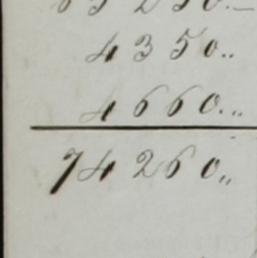 4350..
4660..
74260..